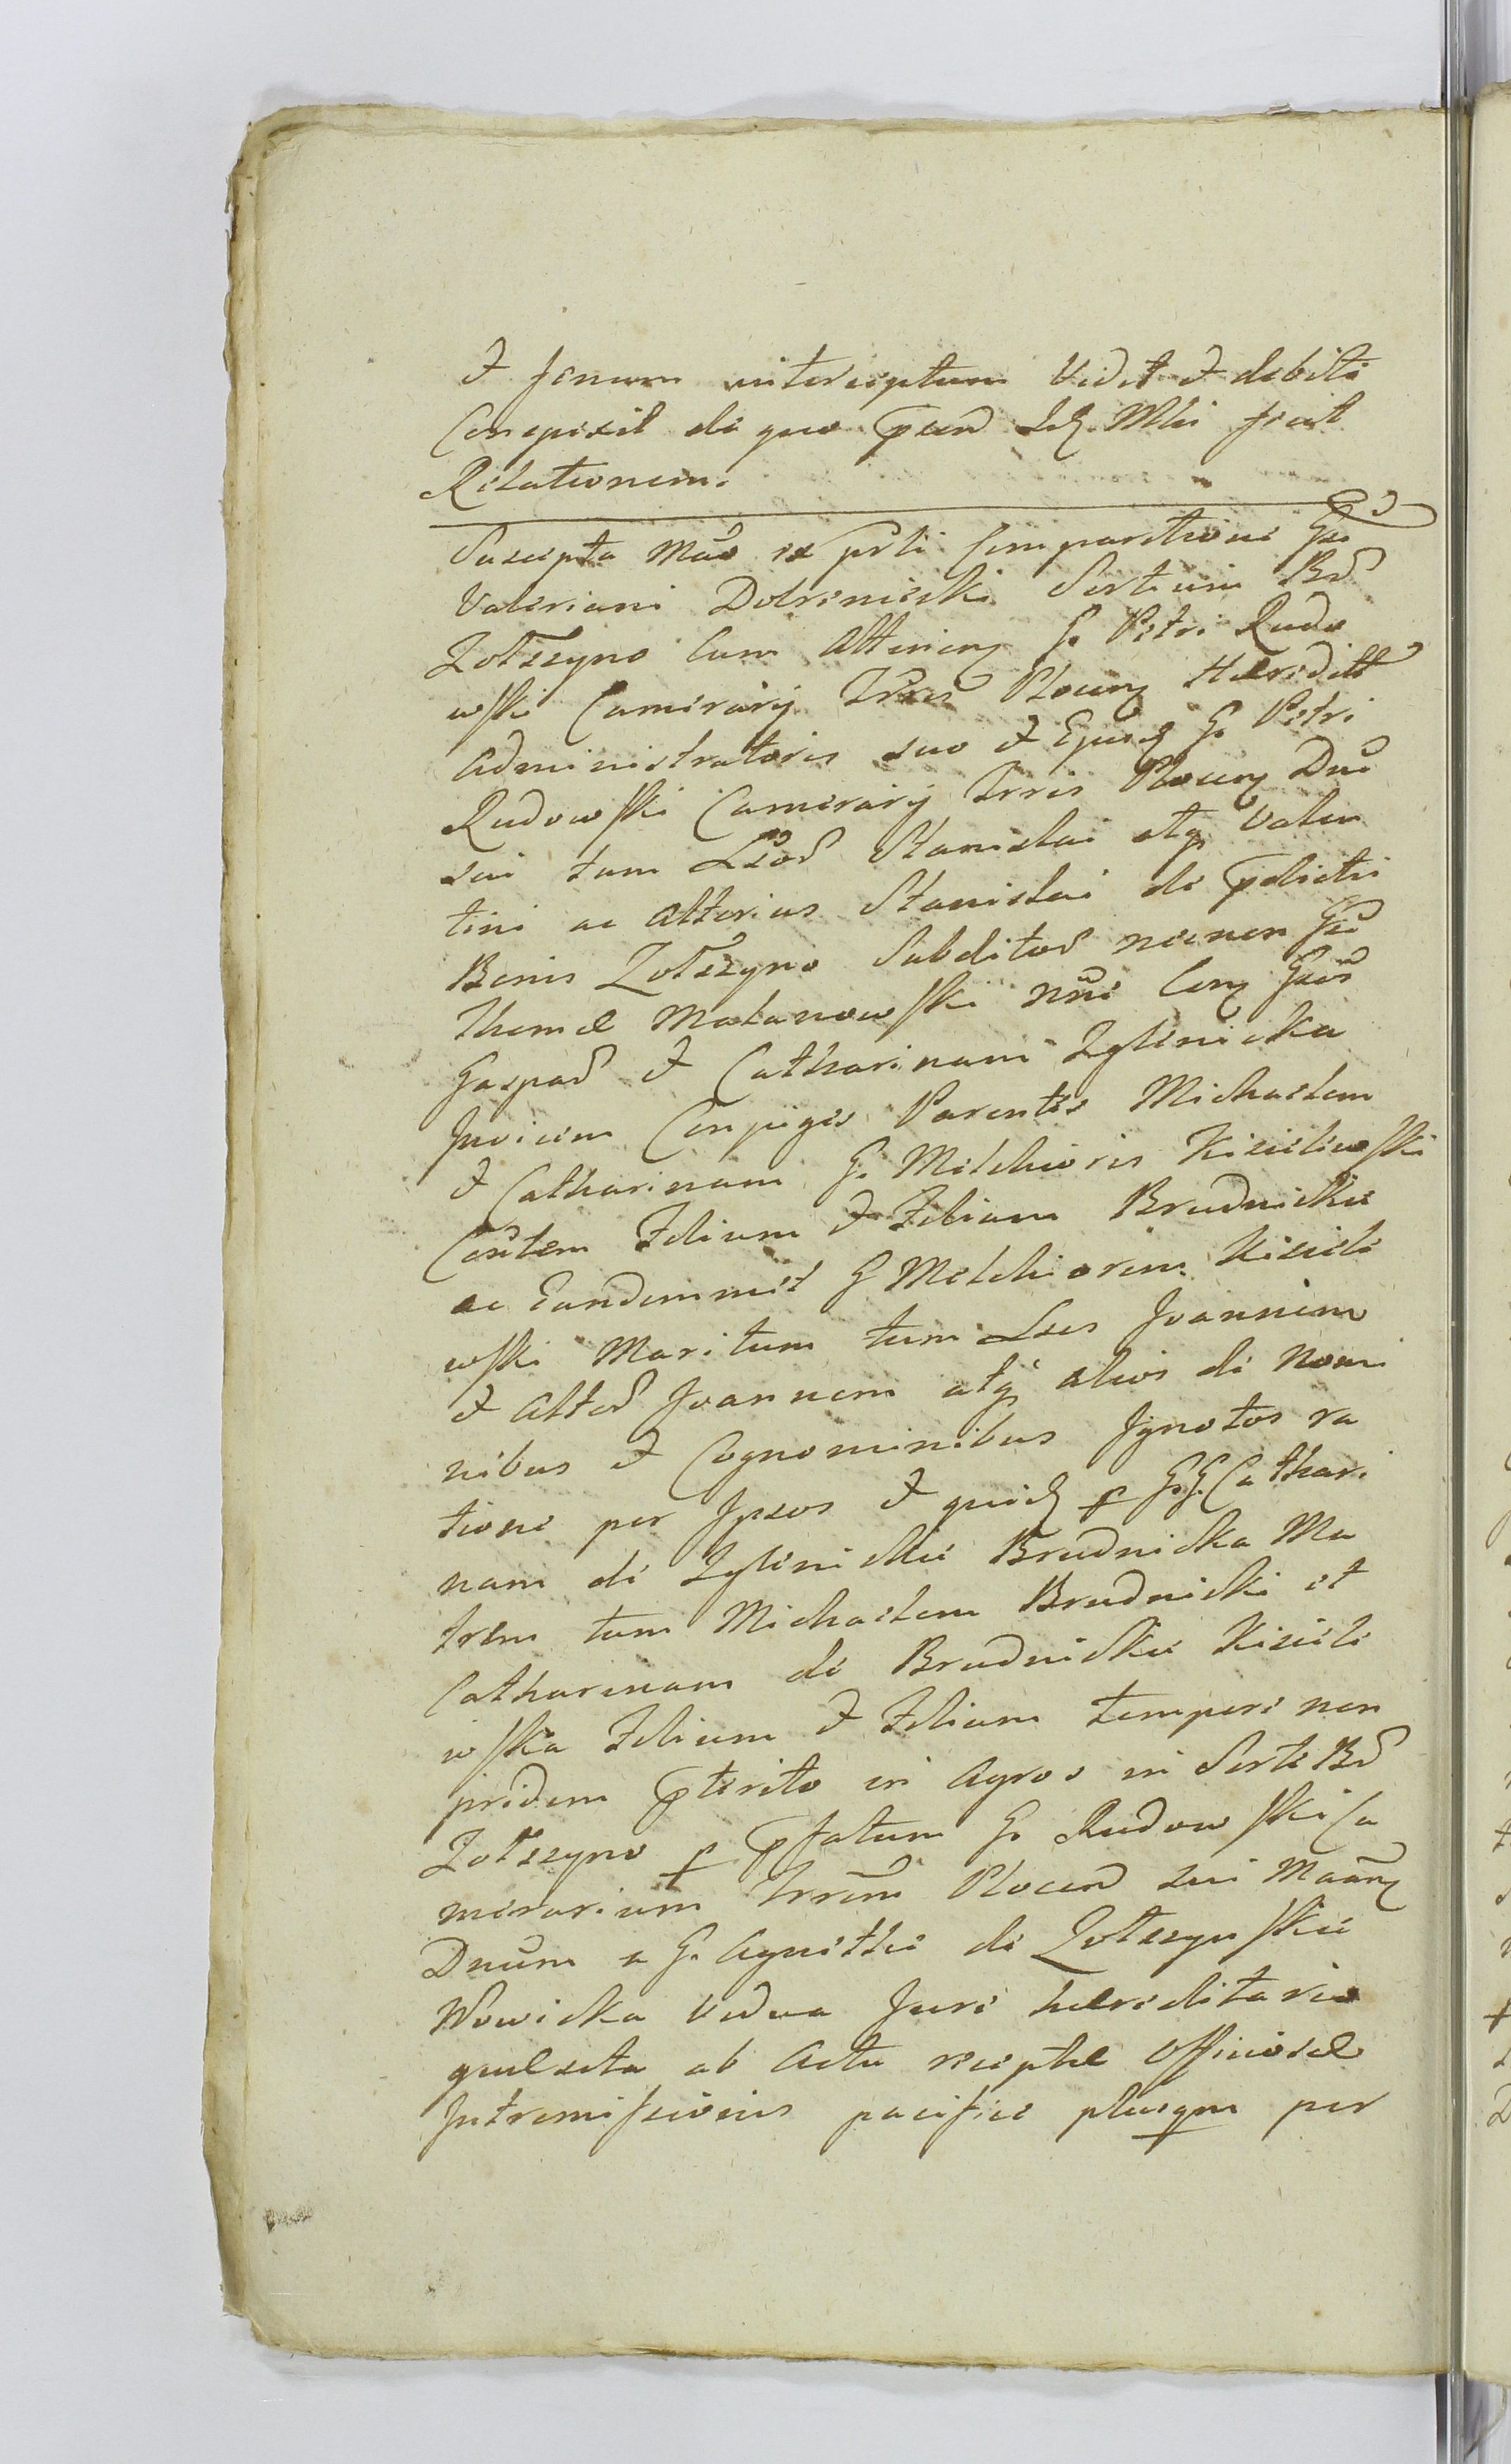 & fenum interceptum vidit & debite
Conspexit de quo prnd Idq Mtri fecit
Relationem.
Suscepta Mao ex prti Comparitione Gsi
Valeriani Dobrzenicki Sortium Bd
Zołszyno cum Attinen G. Petri Rudo
wski Camerarij Trris Plocen Haeredit
Administratoris suo & Ejusq G. Petri
Rudowski Camerarij Trris Plocen Dni
sui tum Lsod Stanislai atq Valen
tini ac alterius Stanislai de pdictis
Bonis Zołszyno Subditod necnon Gsi
Thomae Matanowski Nri Cen Gsos
Gaspad & Catharinam Zglinicka
Invicem Conjuges Parentes Michaelem
& Catharinam G. Melchioris Kisielewski
Cosrtem Filium & Filiam Brudnickie
ac Eundemmet G Melchiorem Kisiele
wski Maritum tum Lsos Joannem
& Altod Joannem atq alios de Nomi
nibus & Cognominibus Ignotos ra
tione per Ipsos & quidq p G.G. Cathari
nam de Zglinickie Brudnicka Ma
trem tum Michaelem Brudnicki et
Catharinam de Brudnickie Kisiele
wska Filium & Filiam tempore non
pridem pterito in Agros in Sorte Bd
Zołszyno p pfatum G. Rudowski Ca
merarium Trrem Plocend sui Maarq
Dnum a G. Agnethe de Zołszynskie
Nowicka vidua Jure haereditario
quaesita ab Actu receptae Officiosae
Intromissionis pacifice plusqm per